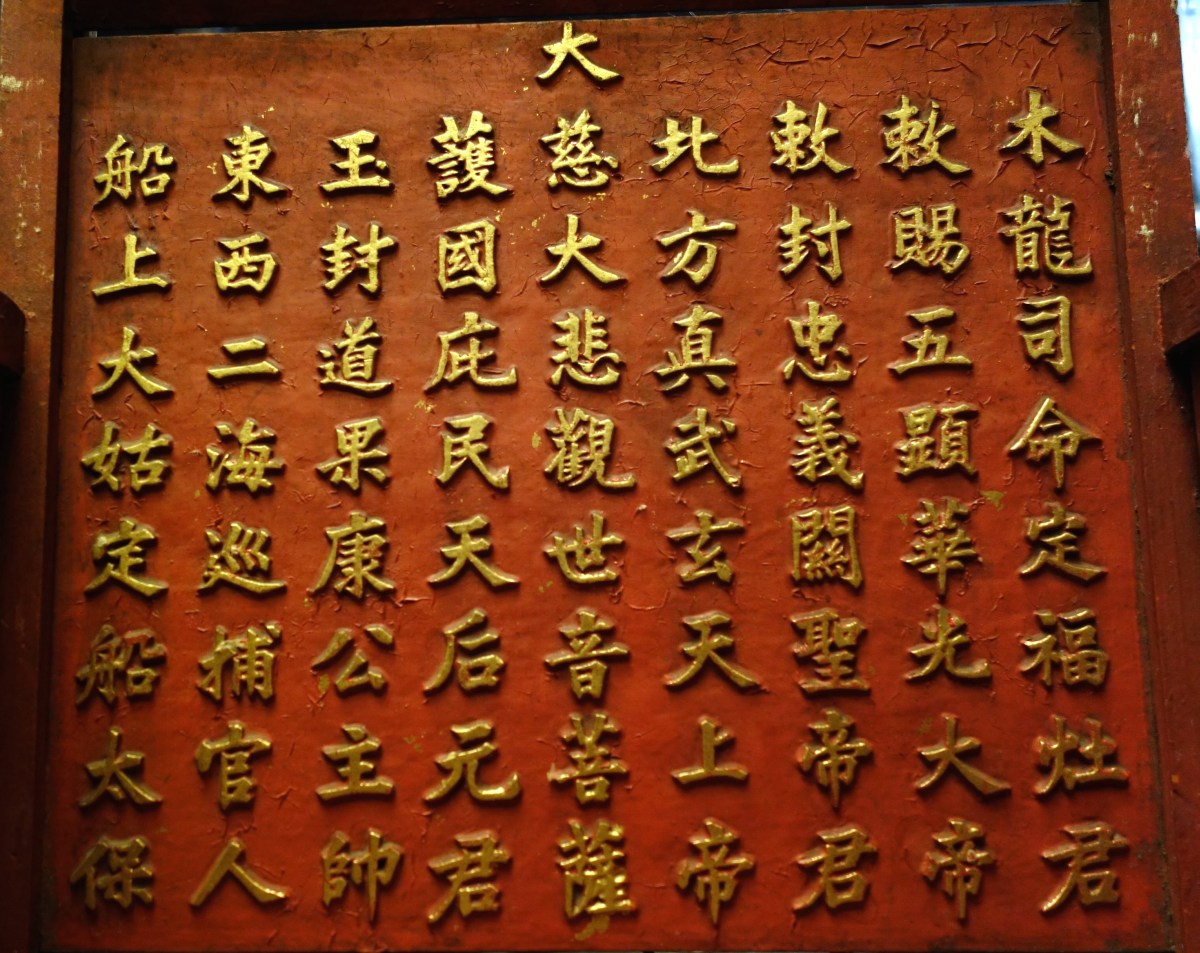 木龍司命定福灶君
敕賜五顯華光大帝
敕封忠義關聖帝君
北方真武玄天上帝
大慈大悲觀世音菩薩
護國庇民天后元君
玉封道果康公主帥
東西二海巡捕官人
船上大姑定船太保